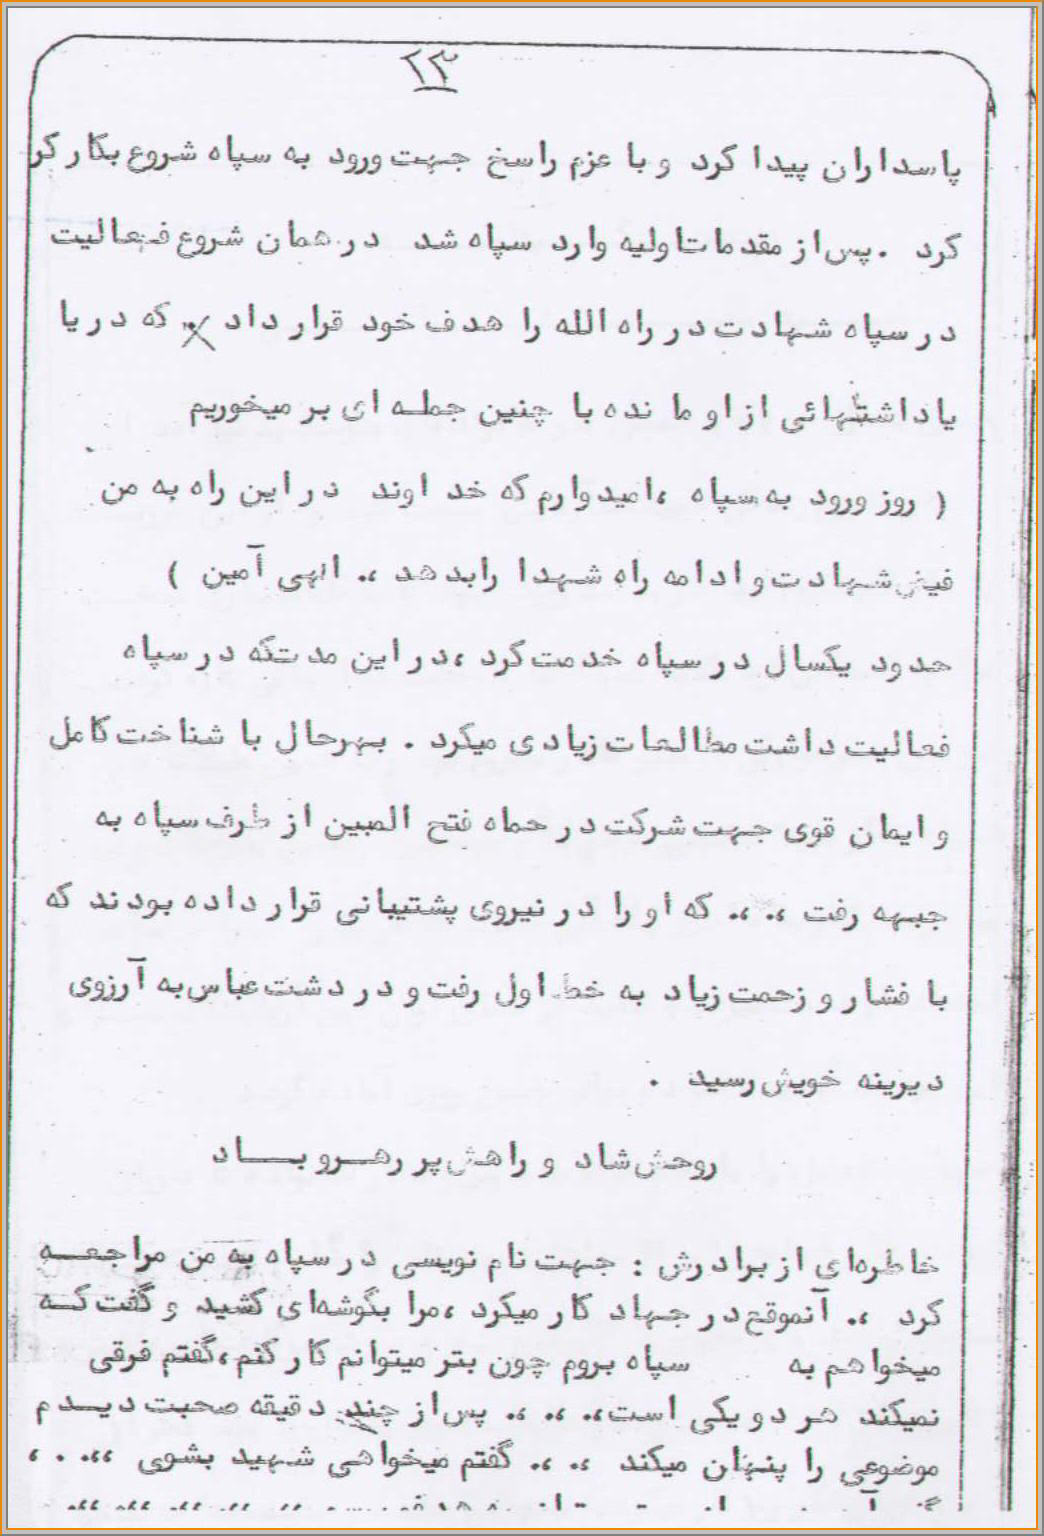 ۲۳
پاسداران پیدا کرد و با عزم راسخ جهت ورود به سپاه شروع بکار کر
کرد . پس از مقدمات اولیه وارد سپاه شد در همان شروع فعالیت
در سپاه شهادت در راه الله را هدف خود قرار داد که در یا
یاداشتهائی از او مانده با چنین جمله ای بر میخوریم
( روز ورود به سپاه ، امیدوارم که خداوند در این راه به من
فیض شهادت و ادامه راه شهدا را بدهد ،. الهی آمین )
حدود یکسال در سپاه خدمت کرد ، در این مدتکه در سپاه
فعالیت داشت مطالعات زیادی میکرد . بهرحال با شناخت کامل
و ایمان قوی جهت شرکت در حماه فتح المبین از طرف سپاه به
جبهه رفت ،. ،. که او را در نیروی پشتیبانی قرار داده بودند که
با فشار و زحمت زیاد به خط اول رفت و در دشت عباس به آرزوی
دیرینه خویش رسید .
روحش شاد و راهش پر رهرو بـــاد
خاطره‌ای از برادرش : جهت نام نویسی در سپاه به من مراجعـــه
کرد ،. آنموقع در جهاد کار میکرد ، مرا بگوشه‌ای کشید و گفت کــه
میخواهم به سپاه بروم چون بتر میتوانم کار کنم ، گفتم فرقی
نمیکند هر دو یکی است ،. ،. ،. پس از چند دقیقه صحبت دیـــدم
موضوعی را پنهان میکند ،. ،. گفتم میخواهی شهید بشوی ،،. . ،